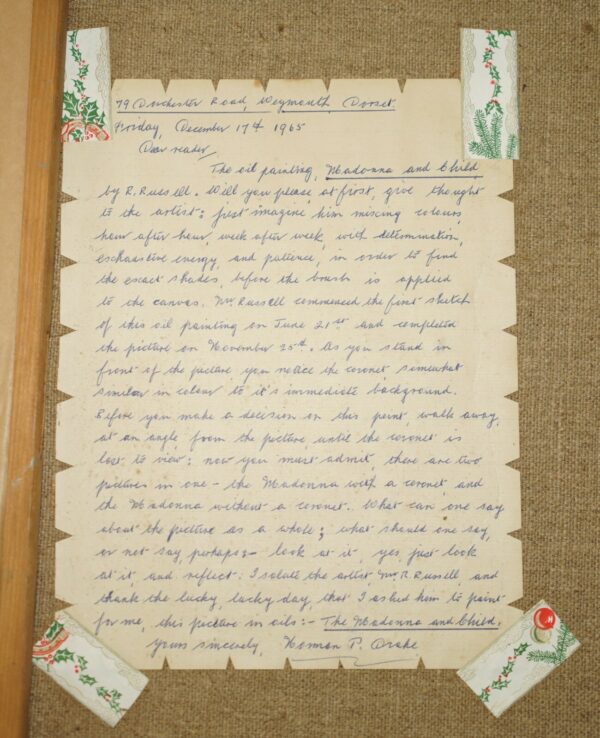 79 Dorchester Road, Weymouth, Dorset.
Friday, December 17th 1965
Dear reader,
The oil painting, Madonna and Child
by R. Russell. Will you please, at first, give thought
to the artist: just imagine him mixing colours,
hour after hour, week after week, with determination,
exhaustive energy, and patience, in order to find
the exact shades, before the brush is applied
to the canvas. Mr. Russell commenced the first sketch
of this oil painting on June 21st and completed
the picture on November 25th. As you stand in
front of the picture you notice the coronet, somewhat
similar in colour to it's immediate background.
Before you make a decision on this point, walk away,
at an angle from the picture until the coronet is
lost to view: now you must admit, there are two
pictures in one - the Madonna with a coronet, and
the Madonna without a coronet. What can one say
about the picture as a whole; what should one say,
or not say, perhaps:- look at it, yes, just look
at it, and reflect. I salute the artist, Mr. R. Russell, and
thank the lucky, lucky day, that I asked him to paint
for me, this picture in oils:- The Madonna and Child.
Yours sincerely, Norman P. Drake